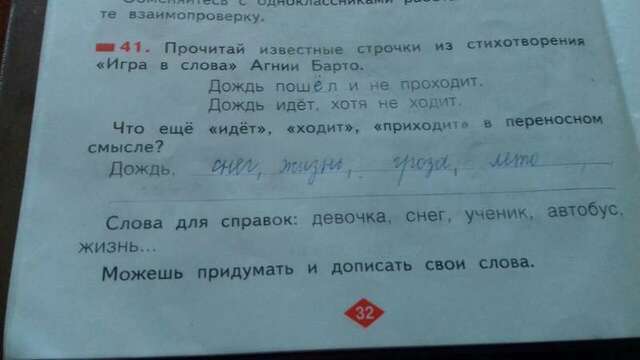 Обменяйтесь с одноклассниками
те взаимопроверку.
41. Прочитай известные строчки из стихотворения
«Игра в слова» Агнии Барто.
Дождь пошёл и не проходит.
Дождь идёт, хотя не ходит.
Что ещё «идёт», «ходит», «приходит» в переносном
смысле?
Дождь, снег, жизнь, гроза, лето
Слова для справок: девочка, снег, ученик, автобус,
жизнь...
Можешь придумать и дописать свои слова.
32